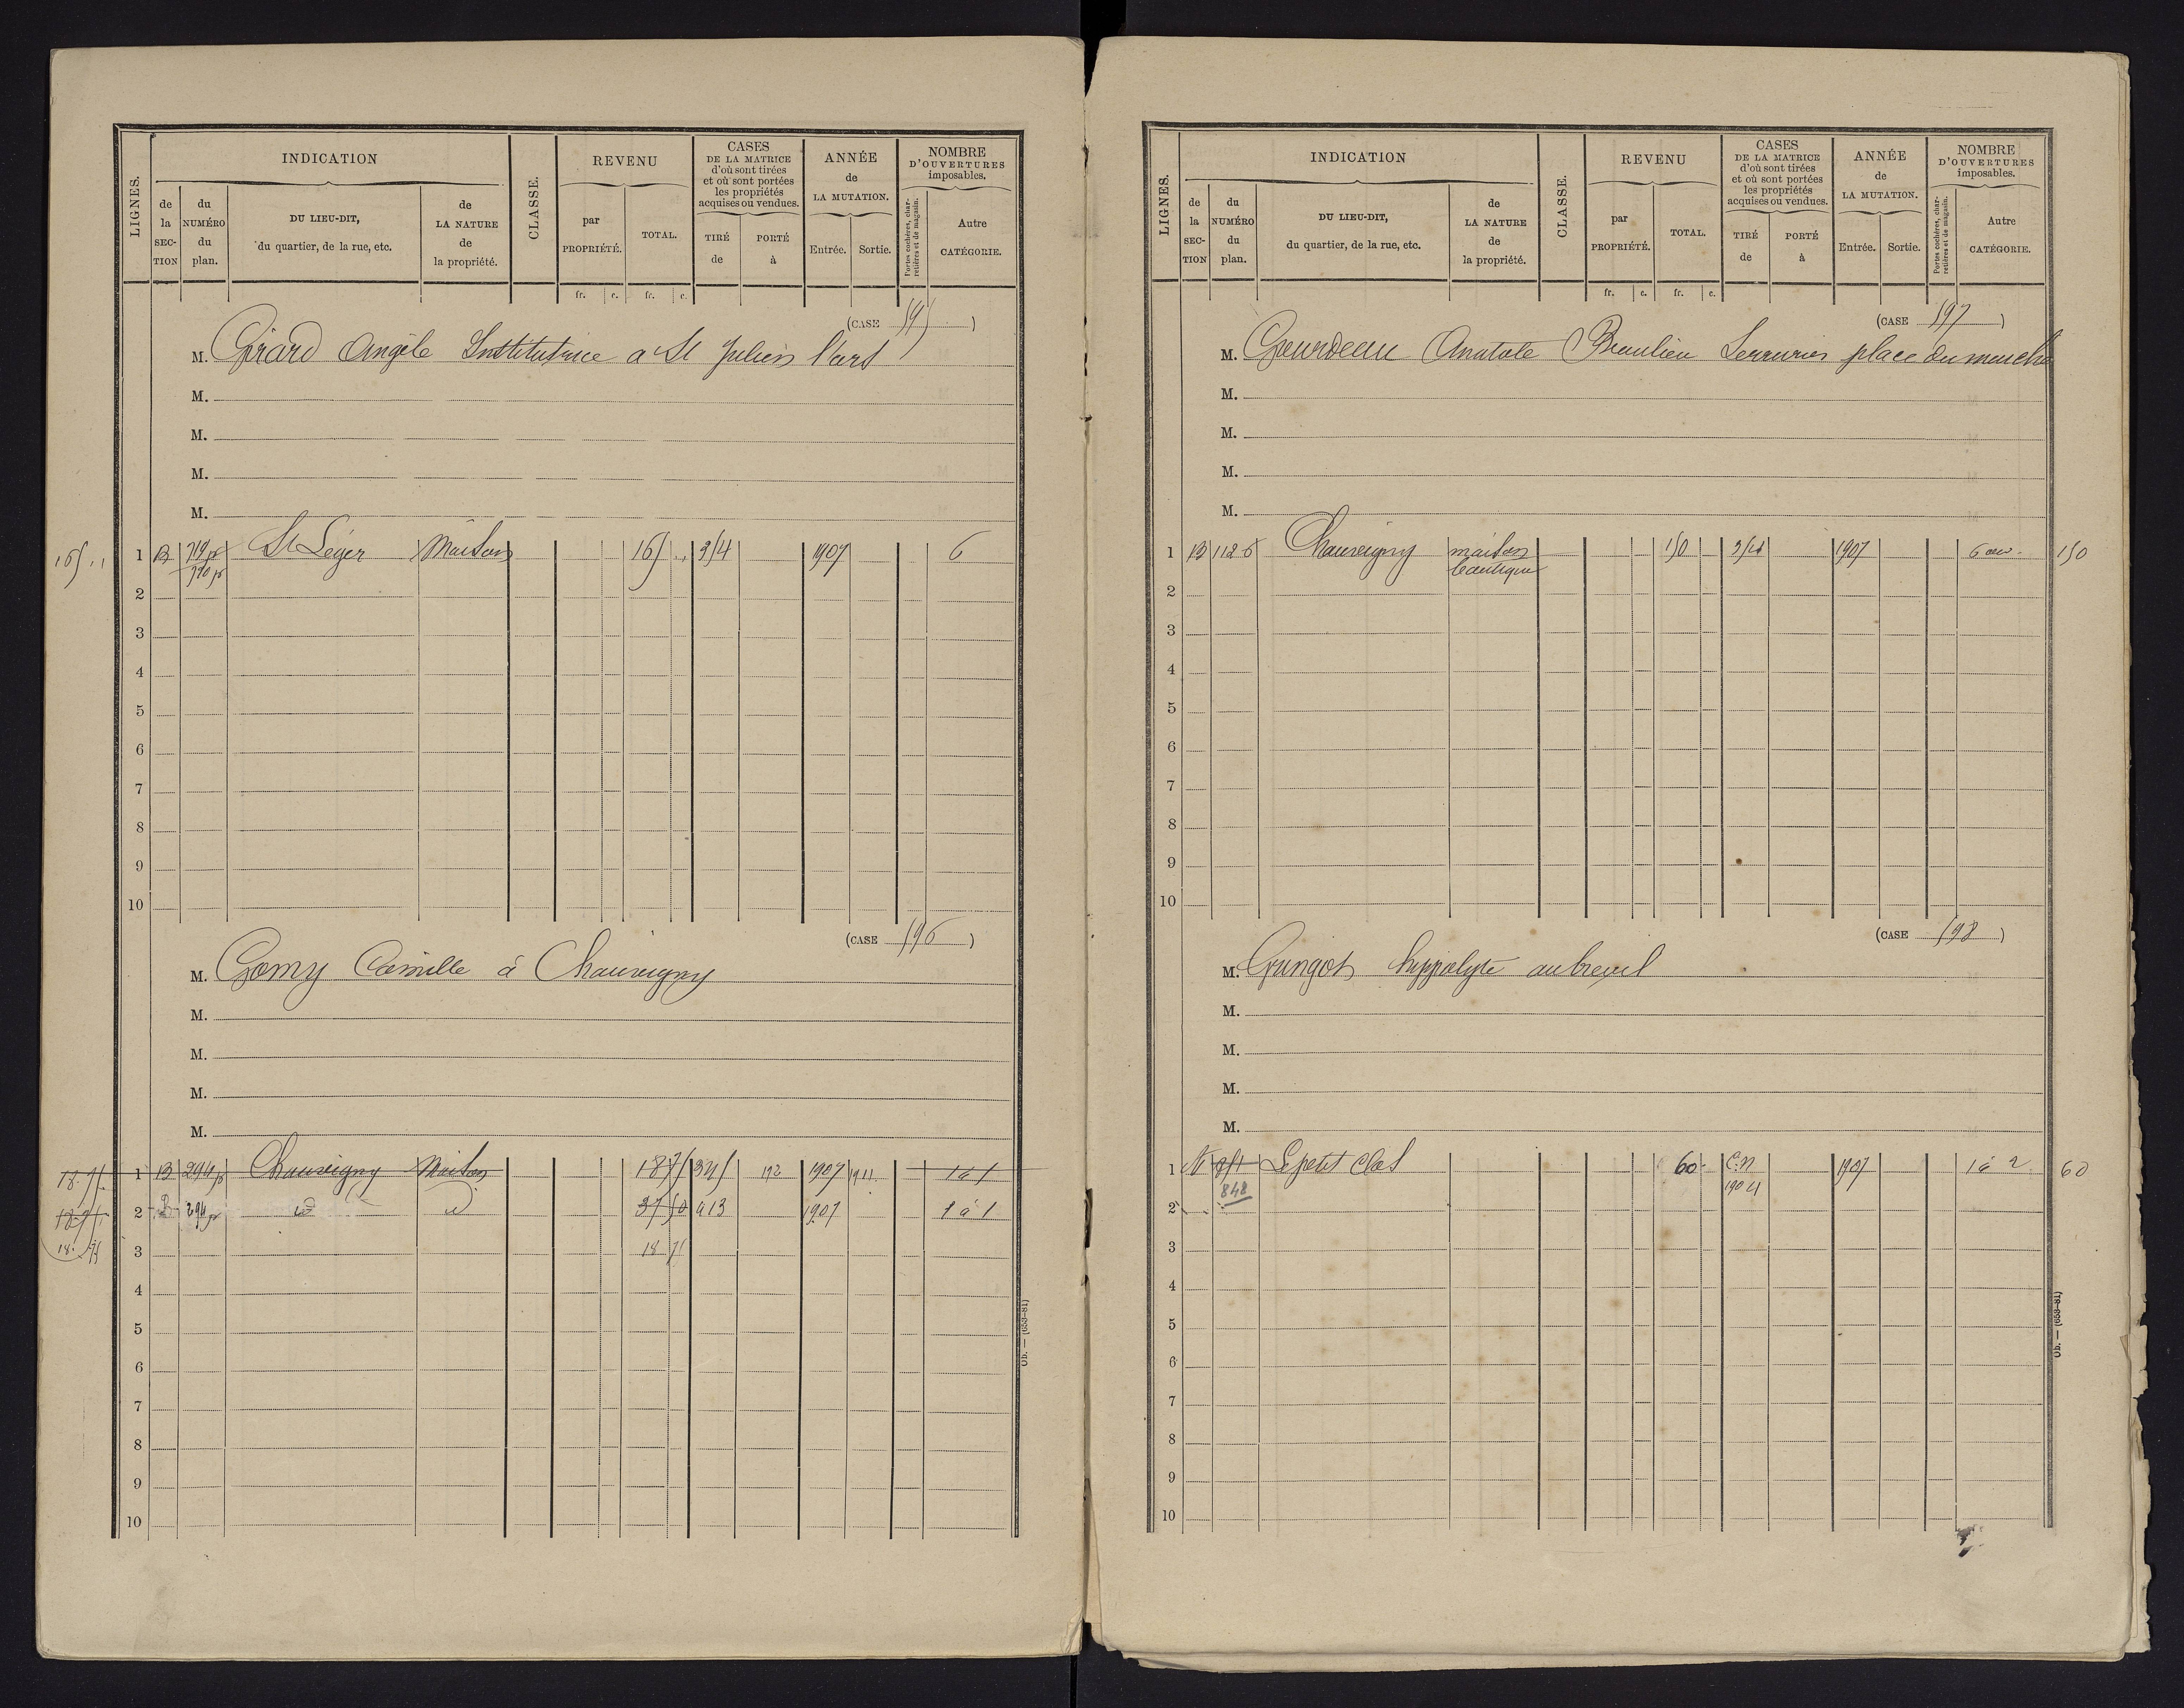 LIGNES.
INDICATION
de la SEC-TION
du NUMÉRO du plan.
DU LIEU-DIT, du quartier, de la rue, etc.
de LA NATURE de la propriété.
CLASSE.
REVENU
par PROPRIÉTÉ.
TOTAL.
fr. c. fr. c.
CASES DE LA MATRICE d'où sont tirées et où sont portées les propriétés acquises ou vendues.
TIRÉ de
PORTÉ à
ANNÉE de LA MUTATION.
Entrée. Sortie.
NOMBRE D'OUVERTURES imposables.
Portes cochères, charretières et de magasin.
Autre CATÉGORIE.
(CASE 595)
M. Girard Angèle Institutrice a St Julien l'ars
M.
M.
M.
M.
165 " 1 B 719 p St Léger Maison 165 " 1907 6
710 p
2
3
4
5
6
7
8
9
10
(CASE 596)
M. Gomy Camille à Chauvigny
M.
M.
M.
M.
18.75 1 B 294 p Chauvigny Maison 18 75 345 192 1907 1911 1 à 1
18.75 2 B 294 p id id 37 50 413 1907 1 à 1
18.75 3 18 75
4
5
6
7
8
9
10
Ob. — (653-81)
LIGNES.
INDICATION
de la SEC-TION
du NUMÉRO du plan.
DU LIEU-DIT, du quartier, de la rue, etc.
de LA NATURE de la propriété.
CLASSE.
REVENU
par PROPRIÉTÉ.
TOTAL.
fr. c. fr. c.
CASES DE LA MATRICE d'où sont tirées et où sont portées les propriétés acquises ou vendues.
TIRÉ de
PORTÉ à
ANNÉE de LA MUTATION.
Entrée. Sortie.
NOMBRE D'OUVERTURES imposables.
Portes cochères, charretières et de magasin.
Autre CATÉGORIE.
(CASE 597)
M. Gourdeau Anatole Beaulieu Serrurier place du marché
M.
M.
M.
M.
1 B 1126 Chauvigny maison 150 1907 6 ouv. 150
boutique
2
3
4
5
6
7
8
9
10
(CASE 598)
M. Gungot hyppolyte au breuil
M.
M.
M.
M.
1 N Le petit Clos 60 C.N 1907 1 à 2 60
848 1904
2
3
4
5
6
7
8
9
10
Ob. — (653-81)